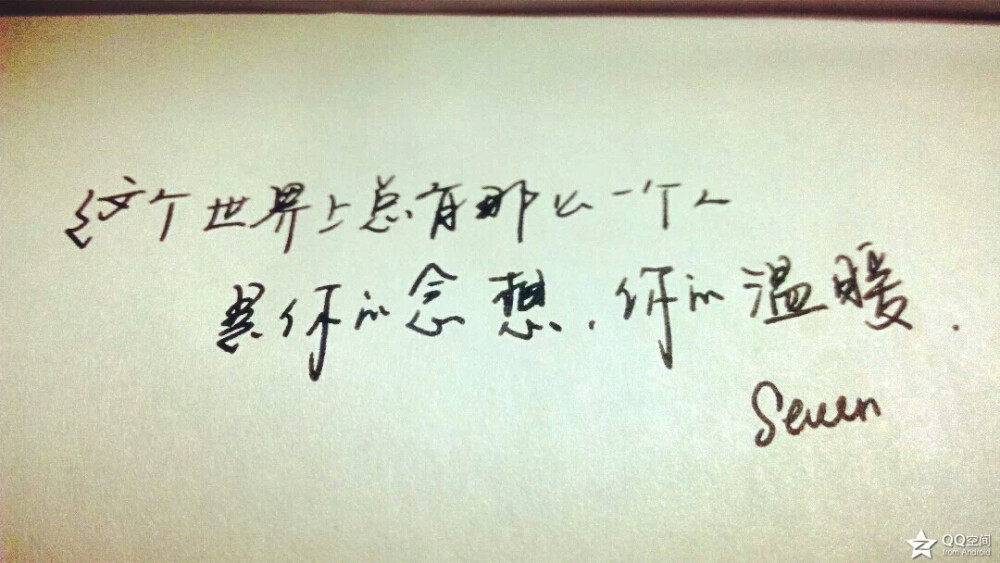 这个世界上总有那么一个人
是你的念想，你的温暖．
Seven
QQ空间
from Android